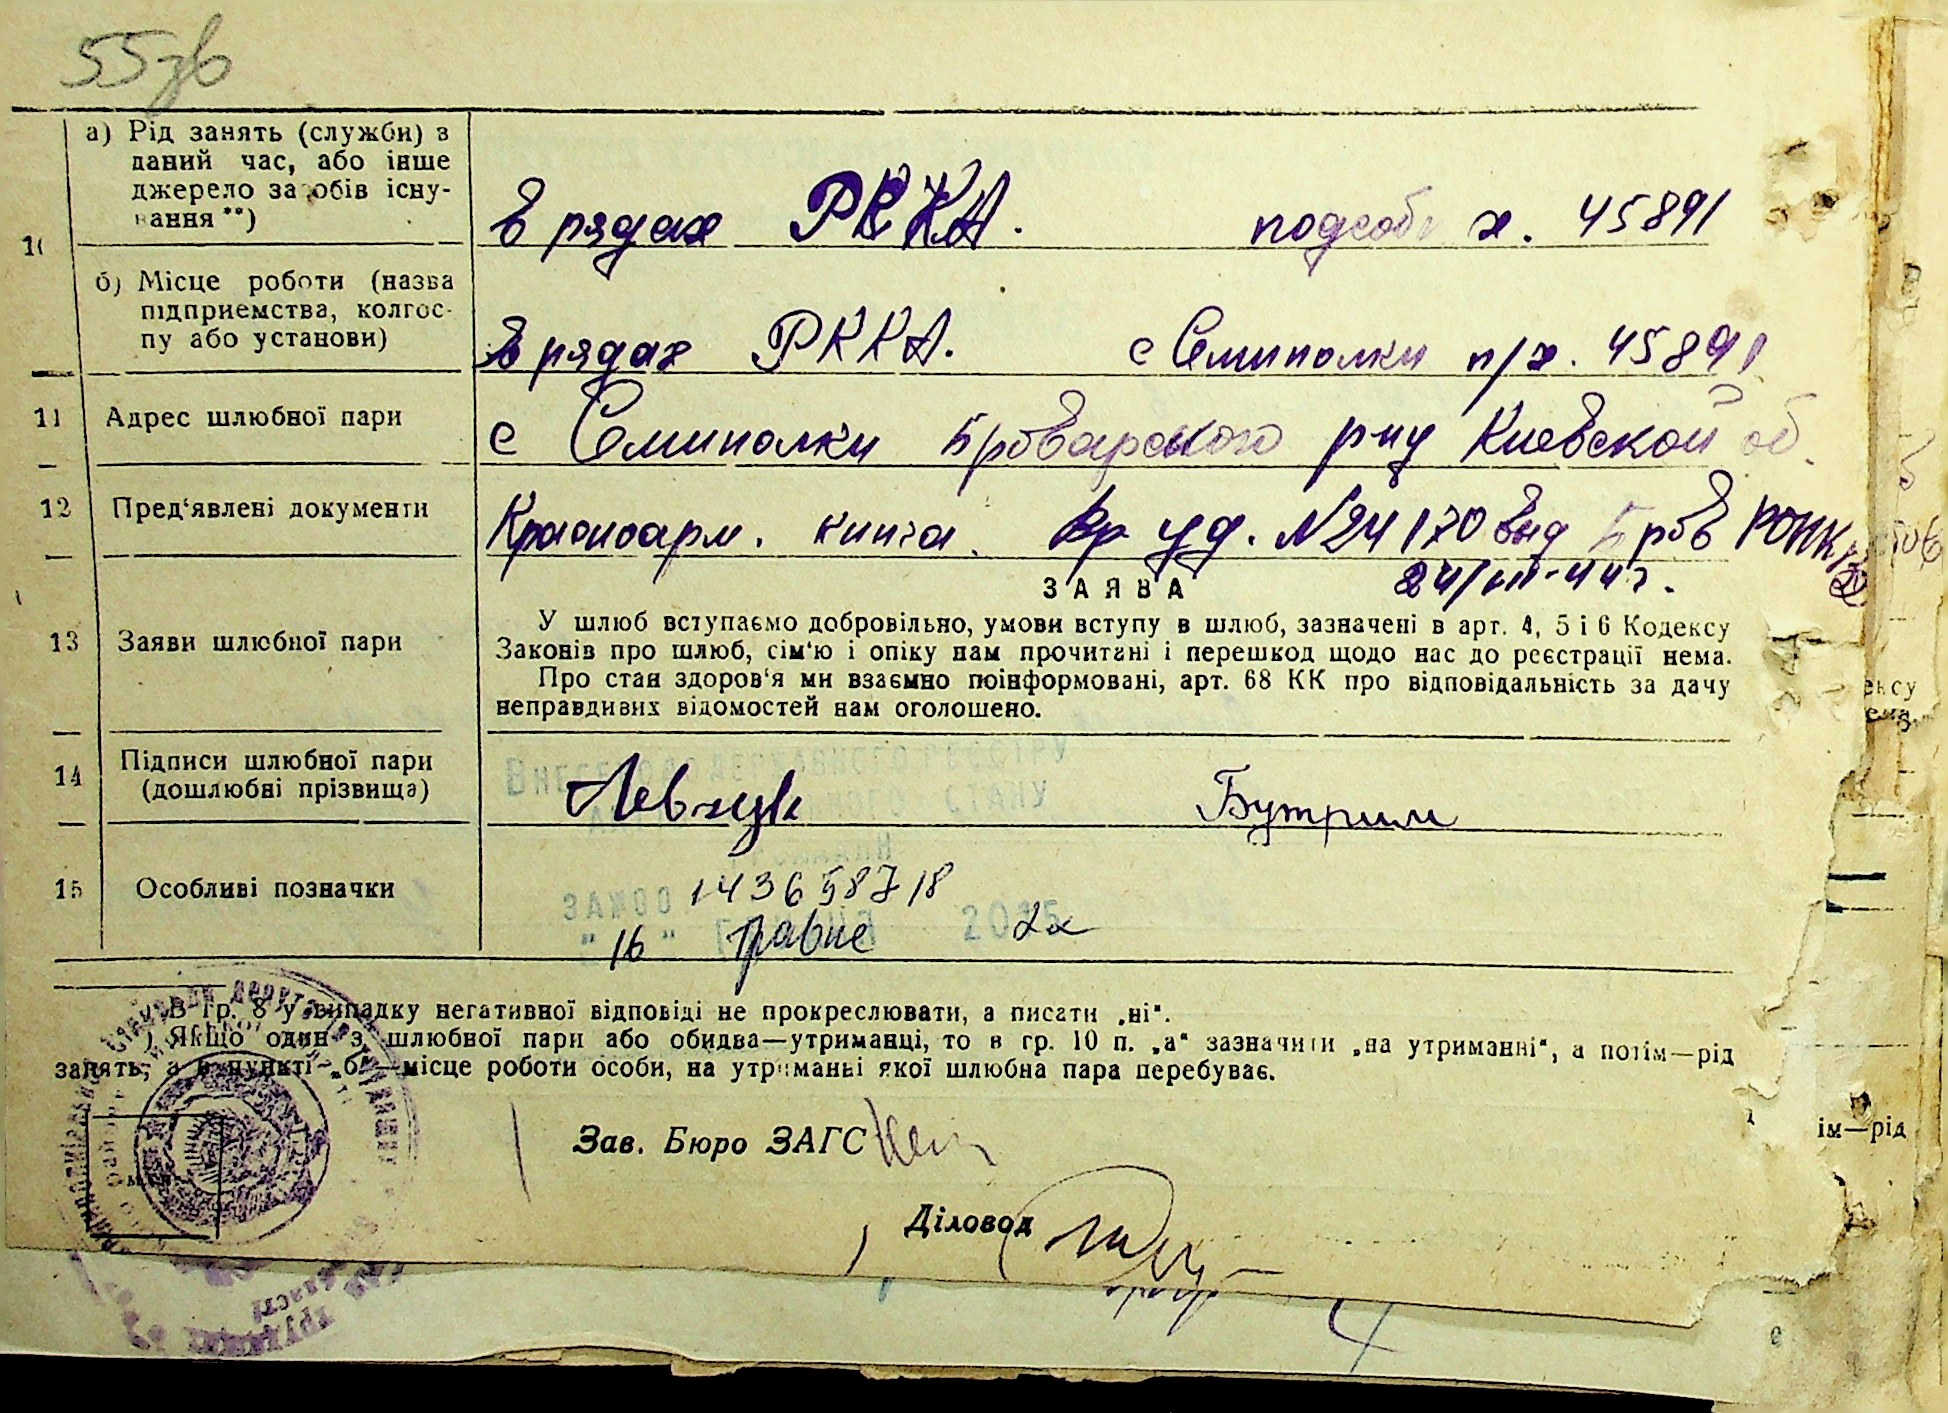 55зв
а) Рід занять (служби) в
даний час, або інше
джерело засобів існу-
вання **)
10
в рядах РККА. подсобн х. 45891
б) Місце роботи (назва
підприємства, колгос-
пу або установи)
в рядах РККА. с Семиполки п/х. 45891
11 Адрес шлюбної пари
с Семиполки Броварского р-ну Киевской об.
12 Пред'явлені документи
Красноарм. книга. Вр уд. N24170 выд Бров РОНК
24/III-44 г.
ЗАЯВА
13 Заяви шлюбної пари
У шлюб вступаємо добровільно, умови вступу в шлюб, зазначені в арт. 4, 5 і 6 Кодексу
Законів про шлюб, сім'ю і опіку нам прочитані і перешкод щодо нас до реєстрації нема.
Про стан здоров'я ми взаємно поінформовані, арт. 68 КК про відповідальність за дачу
неправдивих відомостей нам оголошено.
14 Підписи шлюбної пари
(дошлюбні прізвища)
Левчук Бутрим
ДЕРЖАВНОГО РЕЄСТРУ
СТАНУ
ГРОМАДЯН
15 Особливі позначки
ЗА №00 143658718
" 16 " травня 2015
В гр. 8 у випадку негативної відповіді не прокреслювати, а писати „ні".
) Якщо один з шлюбної пари або обидва—утриманці, то в гр. 10 п. „а" зазначити „на утриманні", а потім—рід
занять, а в пункті „б"—місце роботи особи, на утриманні якої шлюбна пара перебуває.
Зав. Бюро ЗАГС
Діловод
ім—рід